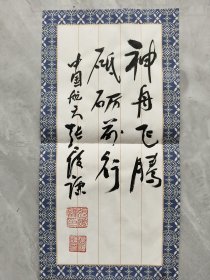 神舟飞腾
砥砺前行
中国航天张履谦